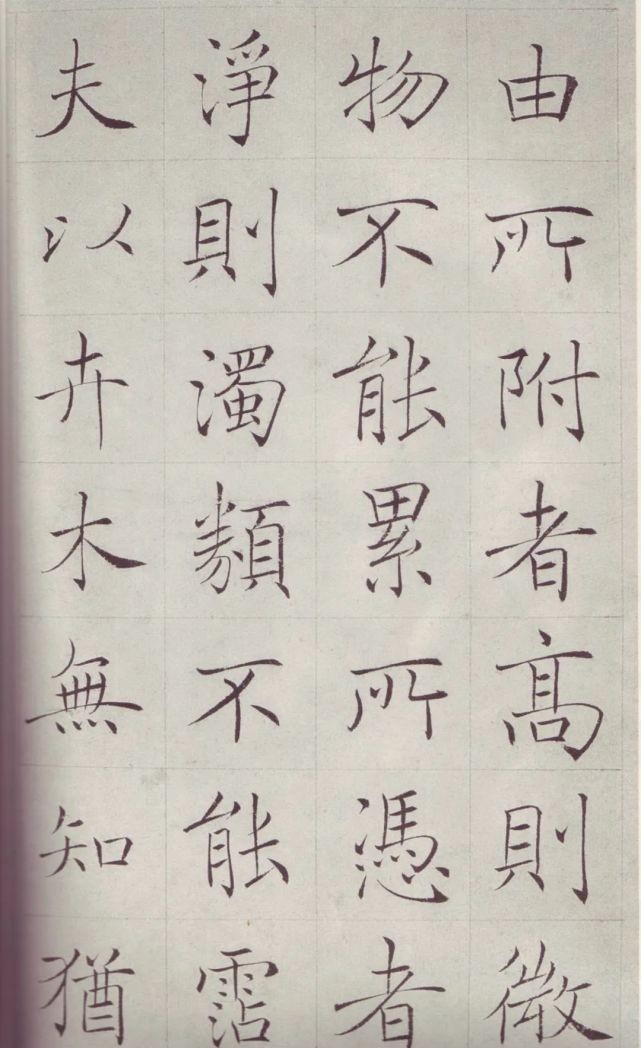 由所附者高則微
物不能累所憑者
淨則濁類不能霑
夫以卉木無知猶